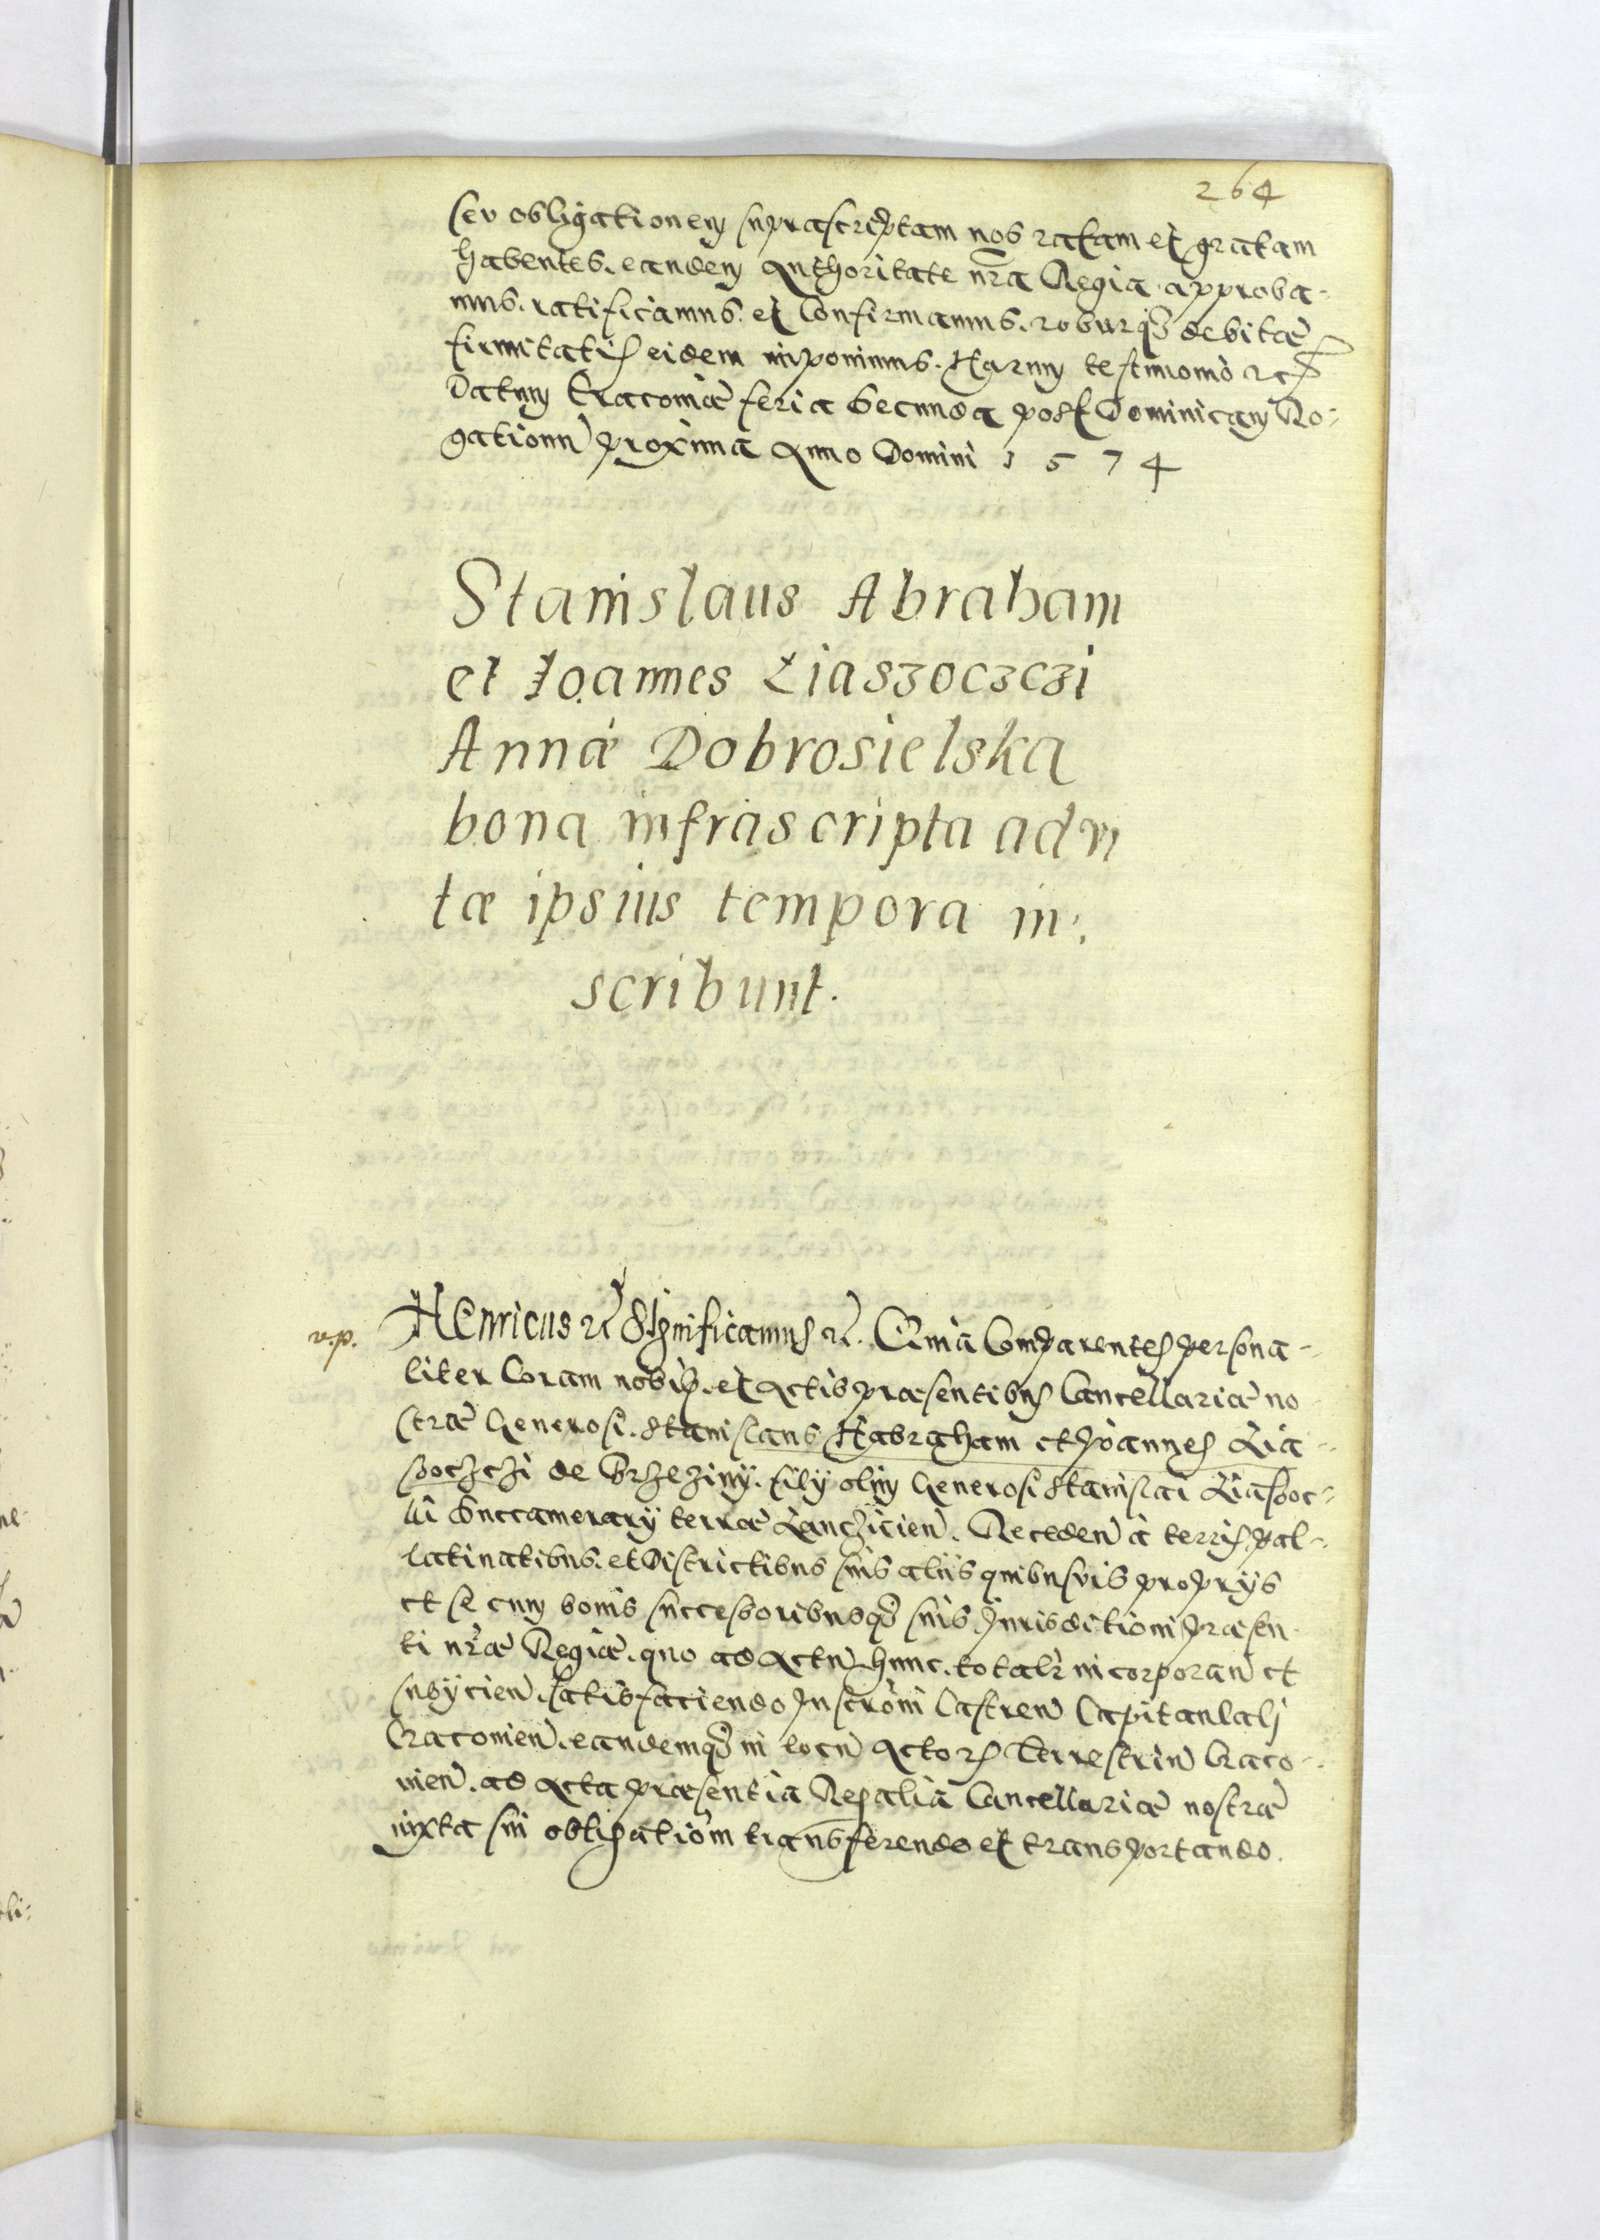 264
seu obligationem suprascriptam nos ratam et gratam
habentes. eandem Authoritate nra Regia approba-
mus. ratificamus. et Confirmamus. roburq3 debitæ
firmitatis eidem imponimus. Harum testimonio etc
Datum Cracoviæ feria Secunda post Dominicam Ro-
gationu proxima Anno Domini 1574
Stanislaus Abraham
et Joannes Liaszoczczi
Annæ Dobrosielska
bona infrascripta ad vi
tæ ipsius tempora in:
scribunt.
v.p.
Henricus etc Significamus etc. Quia Comparentes persona-
liter Coram nobis. et Actis præsentibus Cancellariæ no
stræ Generosi. Stanislaus Habraham et Joannes Lia-
soczczi de Brzeziny. filÿ olim Generosi Stanislai Liasoc-
ki Succamerarÿ terræ Lanczicien. Receden à terris pal-
latinatibus. et Districtibus suis aliis quibusvis propriÿs
et se cum bonis successoribusq3 suis Jurisditioni præsen
ti nræ Regiæ. quo ad Actu hunc. totalr incorporan et
subÿcien. satisfaciendo Inscroni Castren Capitanlali
Cracovien. eandemq3 in locu Actor Terrestriu Craco-
vien. ad Acta præsentia Regalia Cancellariæ nostræ
iuxta sui obligatiom transferendo et transportando.